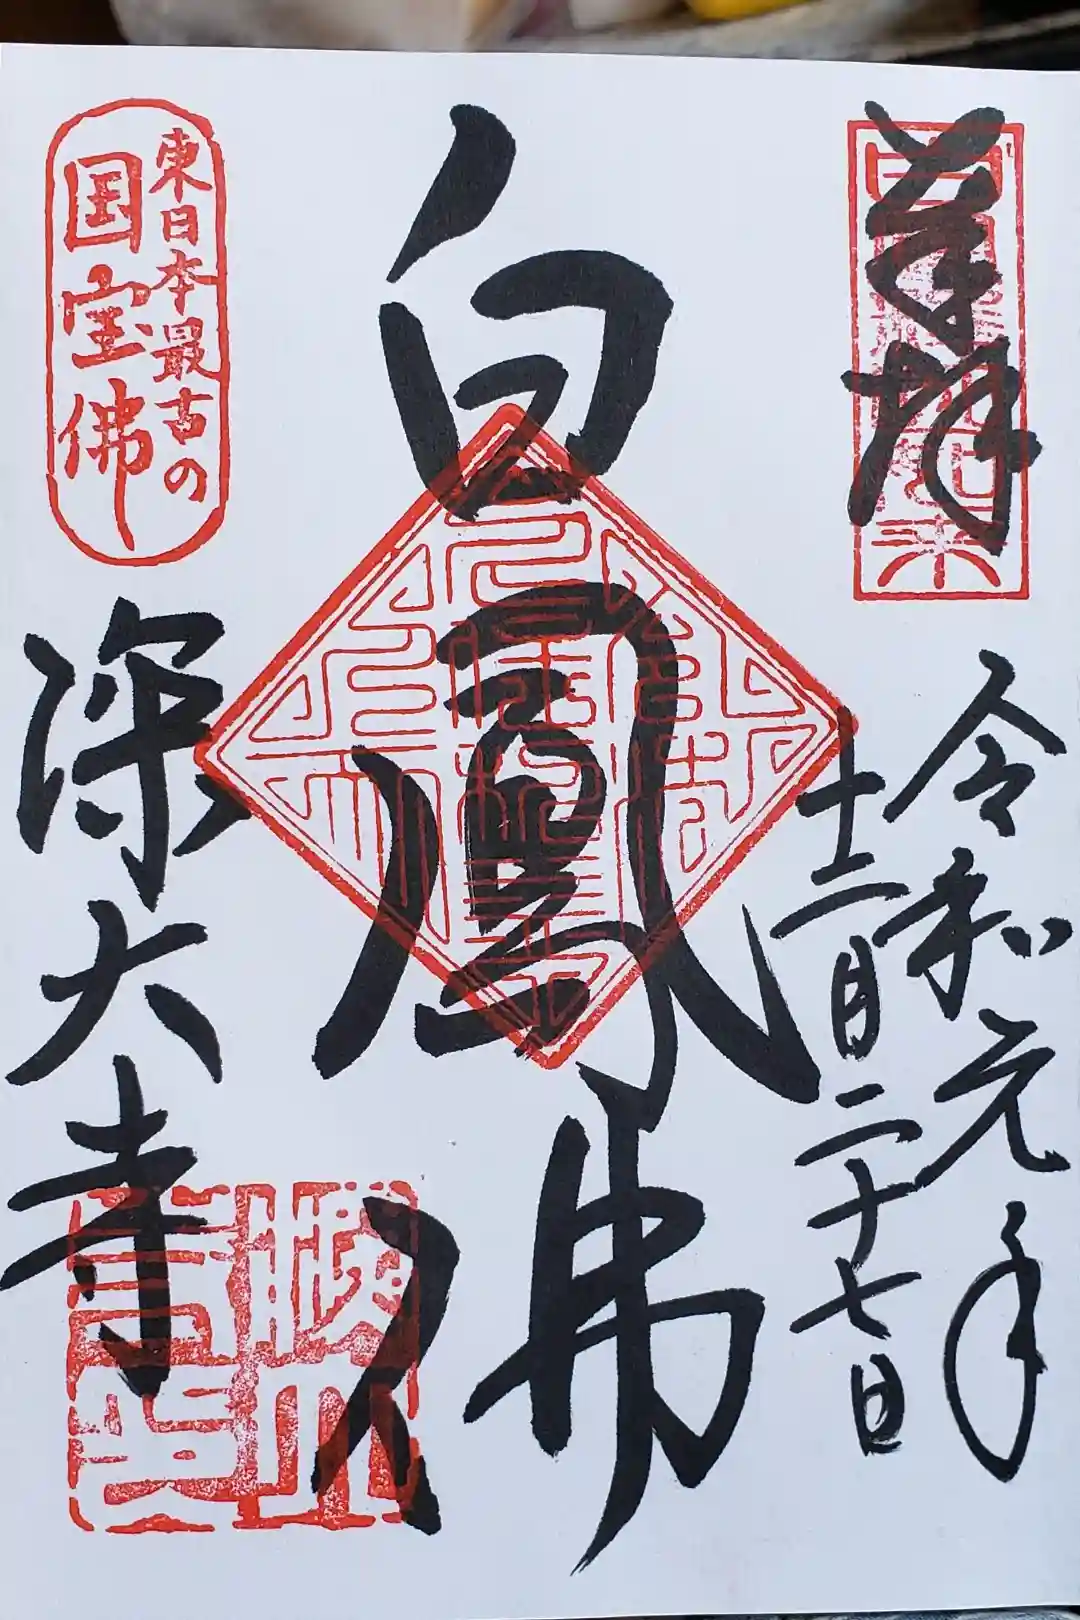 奉拝
令和元年
十二月二十七日
白鳳佛
東日本最古の
国宝佛
深大寺